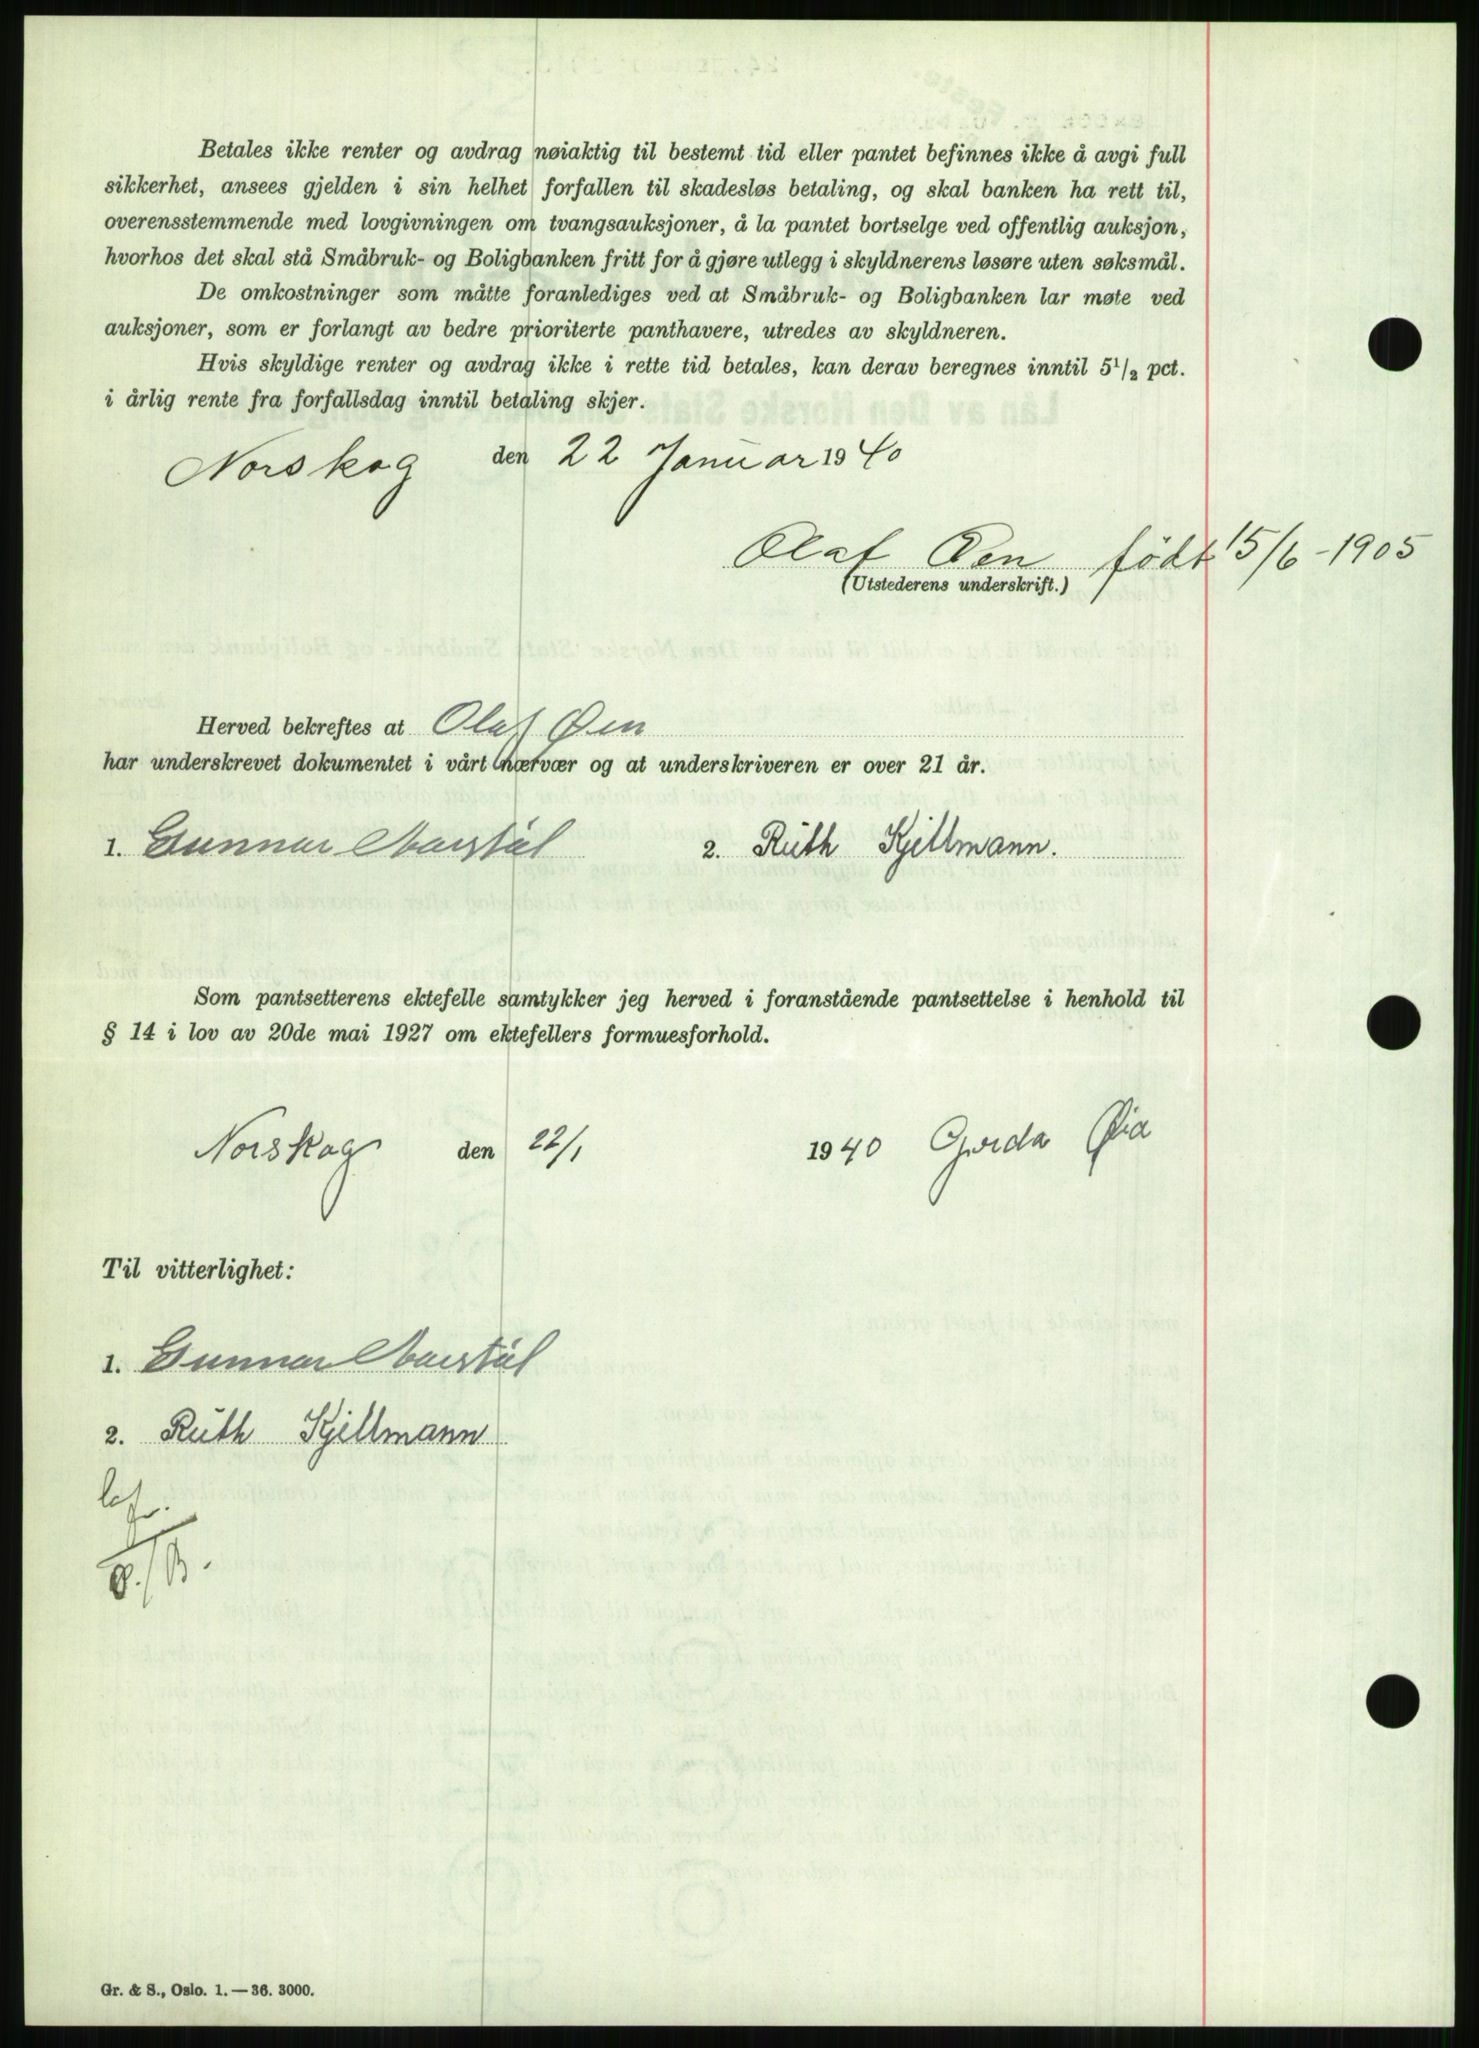 Betales ikke renter og avdrag nøiaktig til bestemt tid eller pantet befinnes ikke å avgi full
sikkerhet, ansees gjelden i sin helhet forfallen til skadesløs betaling, og skal banken ha rett til,
overensstemmende med lovgivningen om tvangsauksjoner, å la pantet bortselge ved offentlig auksjon,
hvorhos det skal stå Småbruk- og Boligbanken fritt for å gjøre utlegg i skyldnerens løsøre uten søksmål.
De omkostninger som måtte foranlediges ved at Småbruk- og Boligbanken lar møte ved
auksjoner, som er forlangt av bedre prioriterte panthavere, utredes av skyldneren.
Hvis skyldige renter og avdrag ikke i rette tid betales, kan derav beregnes inntil 5 1/2 pct.
i årlig rente fra forfallsdag inntil betaling skjer.
Norskog den 22 Januar 1940
Olaf Øen født 15/6-1905
(Utstederens underskrift.)
Herved bekreftes at Olaf Øen
har underskrevet dokumentet i vårt nærvær og at underskriveren er over 21 år.
1. Gunnar 2. Ruth Kjellmann.
Som pantsetterens ektefelle samtykker jeg herved i foranstående pantsettelse i henhold til
§ 14 i lov av 20de mai 1927 om ektefellers formuesforhold.
Norskog den 22/1 1940 Gerda
Til vitterlighet:
1. Gunnar
2. Ruth Kjellmann
Gr. & S., Oslo. 1.—36. 3000.